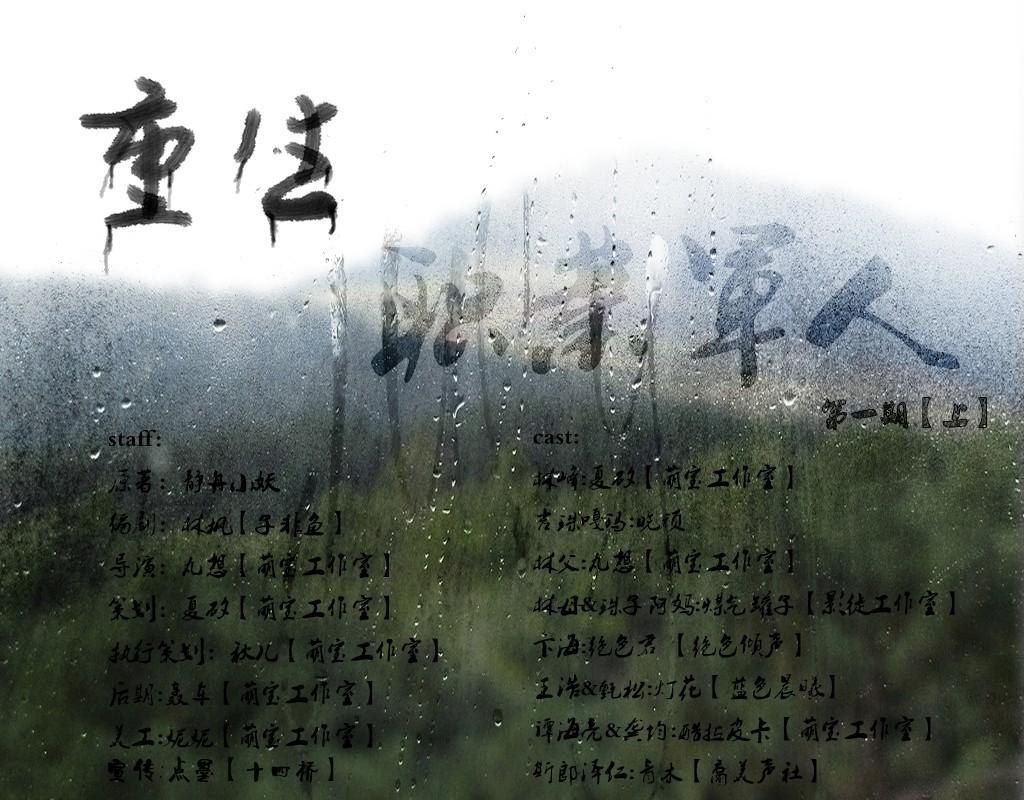 重生
职业军人
第一期【上】
staff:
原著：静舟小妖
编剧：林枫【子非鱼】
导演：丸想【萌宝工作室】
策划：夏矽【萌宝工作室】
执行策划：秋儿【萌宝工作室】
后期:轰车【萌宝工作室】
美工:妮妮【萌宝工作室】
宣传:点墨【十四桥】
cast:
林峰:夏矽【萌宝工作室】
吉珠嘎玛:晓顾
林父:丸想【萌宝工作室】
林母&珠子阿妈:煤气罐子【影徒工作室】
卞海:绝色君【绝色倾声】
王浩&钱松:灯花【蓝色晨曦】
谭海亮&龚均:醋拉皮卡【萌宝工作室】
斯郎泽仁:青木【裔美声社】